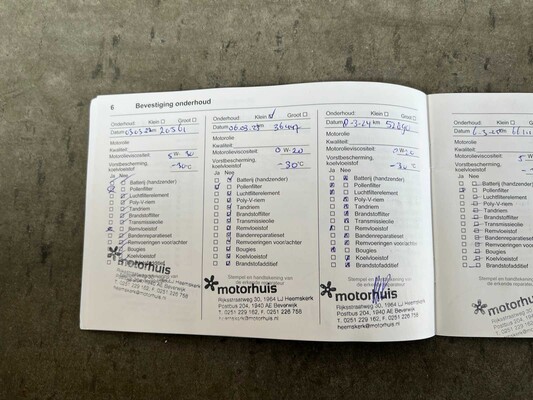 6 Bevestiging onderhoud
Onderhoud: Klein Groot
Datum km
Motorolie
Kwaliteit:
Motorolieviscositeit: 5 W- 30
Vorstbescherming, koelvloeistof -30°C
Ja Nee
Batterij (handzender)
Pollenfilter
Luchtfilterelement
Poly-V-riem
Tandriem
Brandstoffilter
Transmissieolie
Remvloeistof
Bandenreparatieset
Remvoeringen voor/achter
Bougies
Koelvloeistof
motorhuis
Rijksstraatweg 30, 1964 LJ Heemskerk
Postbus 204, 1940 AE Beverwijk
T. 0251 229 162, F. 0251 226 758
Onderhoud: Klein Groot
Datum km
Motorolie
Kwaliteit:
Motorolieviscositeit: 0 W- 20
Vorstbescherming, koelvloeistof -30°C
Ja Nee
Batterij (handzender)
Pollenfilter
Luchtfilterelement
Poly-V-riem
Tandriem
Brandstoffilter
Transmissieolie
Remvloeistof
Bandenreparatieset
Remvoeringen voor/achter
Bougies
Koelvloeistof
Brandstofadditief
Stempel en handtekening van
de erkende reparateur
motorhuis
Rijksstraatweg 30, 1964 LJ Heemskerk
Postbus 204, 1940 AE Beverwijk
T. 0251 229 162, F. 0251 226 758
heemskerk@motorhuis.nl
Onderhoud: Klein Groot
Datum km
Motorolie
Kwaliteit:
Motorolieviscositeit: 0W-20
Vorstbescherming, koelvloeistof -30°C
Ja Nee
Batterij (handzender)
Pollenfilter
Luchtfilterelement
Poly-V-riem
Tandriem
Brandstoffilter
Transmissieolie
Remvloeistof
Bandenreparatieset
Remvoeringen voor/achter
Bougies
Koelvloeistof
Brandstofadditief
Stempel en handtekening van
de erkende reparateur
motorhuis
Rijksstraatweg 30, 1964 LJ Heemskerk
Postbus 204, 1940 AE Beverwijk
T. 0251 229 162, F. 0251 226 758
heemskerk@motorhuis.nl
Onderhoud: Klein
Motorolie
Kwaliteit:
Motorolieviscositeit:
Vorstbescherming, koelvloeistof
Ja Nee
Batterij (handzender)
Pollenfilter
Luchtfilterelement
Poly-V-riem
Tandriem
Brandstoffilter
Transmissieolie
Remvloeistof
Bandenreparatieset
Remvoeringen voor
Bougies
Koelvloeistof
Brandstofadditief
motorh